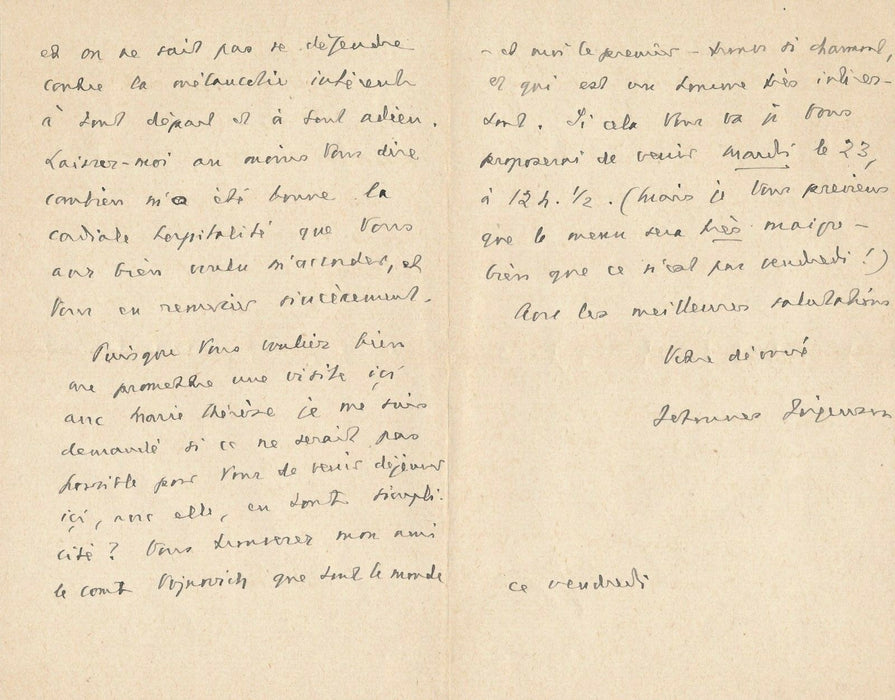 et on ne sait pas se défendre
contre la mélancolie inhérente
à tout départ et à tout adieu.
Laissez-moi au moins Vous dire
combien m'a été bonne la
cordiale hospitalité que Vous
avez bien voulu m'accorder, et
Vous en remercier sincèrement.
Puisque Vous vouliez bien
me promettre une visite içi
avec Marie Thérèse je me suis
demandé si ce ne serait pas
possible pour Vous de venir déjeuner
içi, avec elle, en toute simpli-
cité? Vous trouverez mon ami
le comte Vojnovich que tout le monde
- et moi le premier - trouve si charmant,
et qui est un homme très intéres-
sant. Si cela Vous va je Vous
proposerai de venir mardi le 23,
à 12 h. 1/2. (Mais je Vous previens
que le menu sera très maigre -
bien que ce n'est pas vendredi!)
Avec les meilleures salutations
Votre dévoué
Johannes Jörgensen
ce vendredi